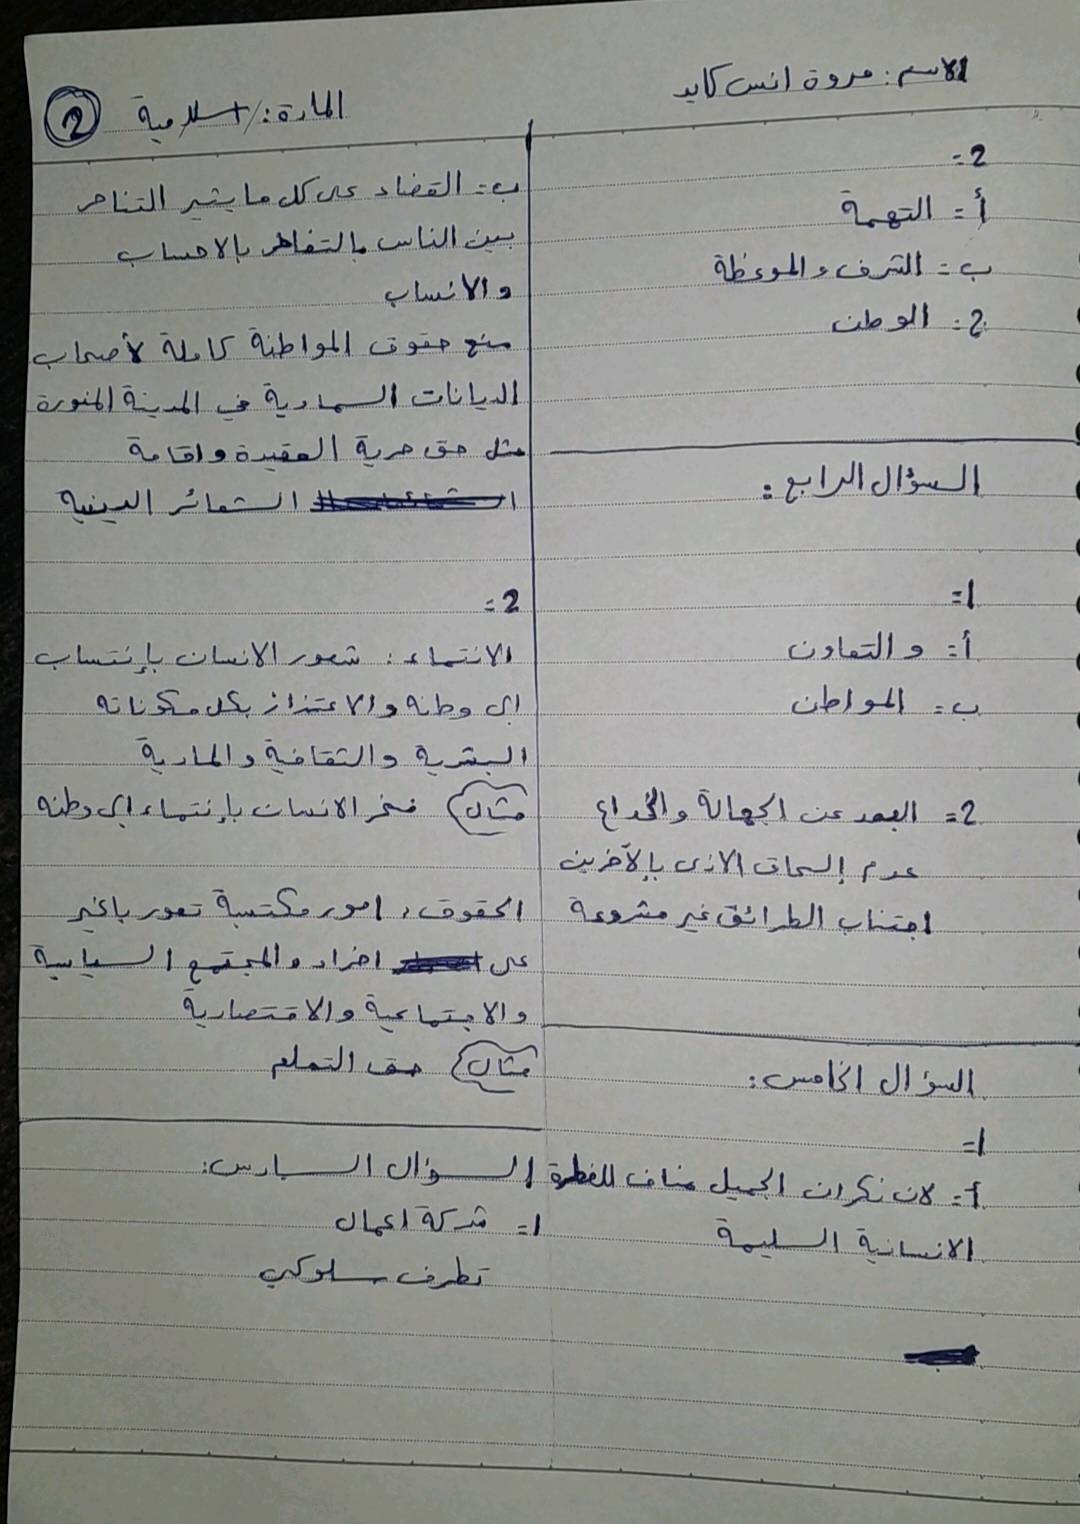 الاسم: مروة انس كايد
المادة: اسلامية
2
2=
أ= التهمة
ب= الشرف والموعظة
ج= الوطن
السؤال الرابع:
1=
أ= والتعاون
ب= المواطن
2= البعد عن الجهالة والخداع
عدم إلحاق الاذى بالآخرين
اجتناب الطرائق غير مشروعة
السؤال الخامس:
1=
أ= لان نكران الجميل مناف للفطرة
الانسانية السليمة
ب= القضاء على كل ما يثير التناحر
بين الناس بالتفاخر بالاحساب
والانساب
منح حقوق المواطنة كاملة لأصحاب
الديانات السماوية في المدينة المنورة
مثل حق حرية العقيدة واقامة
الشعائر الدينية
2=
الانتماء: شعور الانسان بإنتساب
الى وطنه والاعتزاز بكل مكوناته
البشرية والثقافية والمادية
مثال فخر الانسان بإنتماء الى وطنه
الحقوق: امور مكتسبة تعود باخير
على افراد والمجتمع السياسية
والاجتماعية والاقتصادية
مثال حق التعلم
السؤال السادس:
1= شركة اعمال
تطرف سلوكي